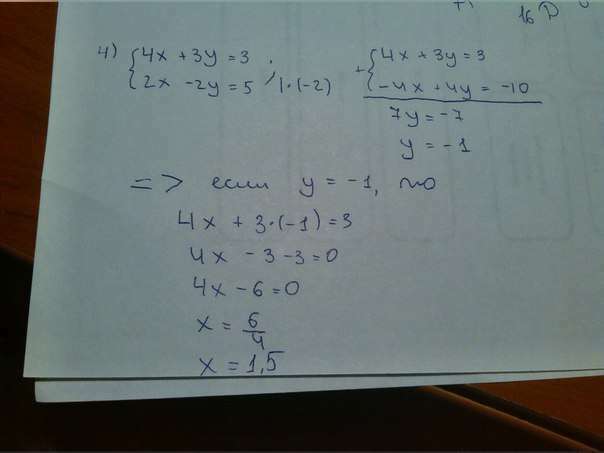 16 D
4) { 4x + 3y = 3
{ 2x - 2y = 5 / | · (-2)
+ { 4x + 3y = 3
{ -4x + 4y = -10
7y = -7
y = -1
=> если y = -1, то
4x + 3·(-1) = 3
4x - 3 - 3 = 0
4x - 6 = 0
x = 6/4
x = 1,5